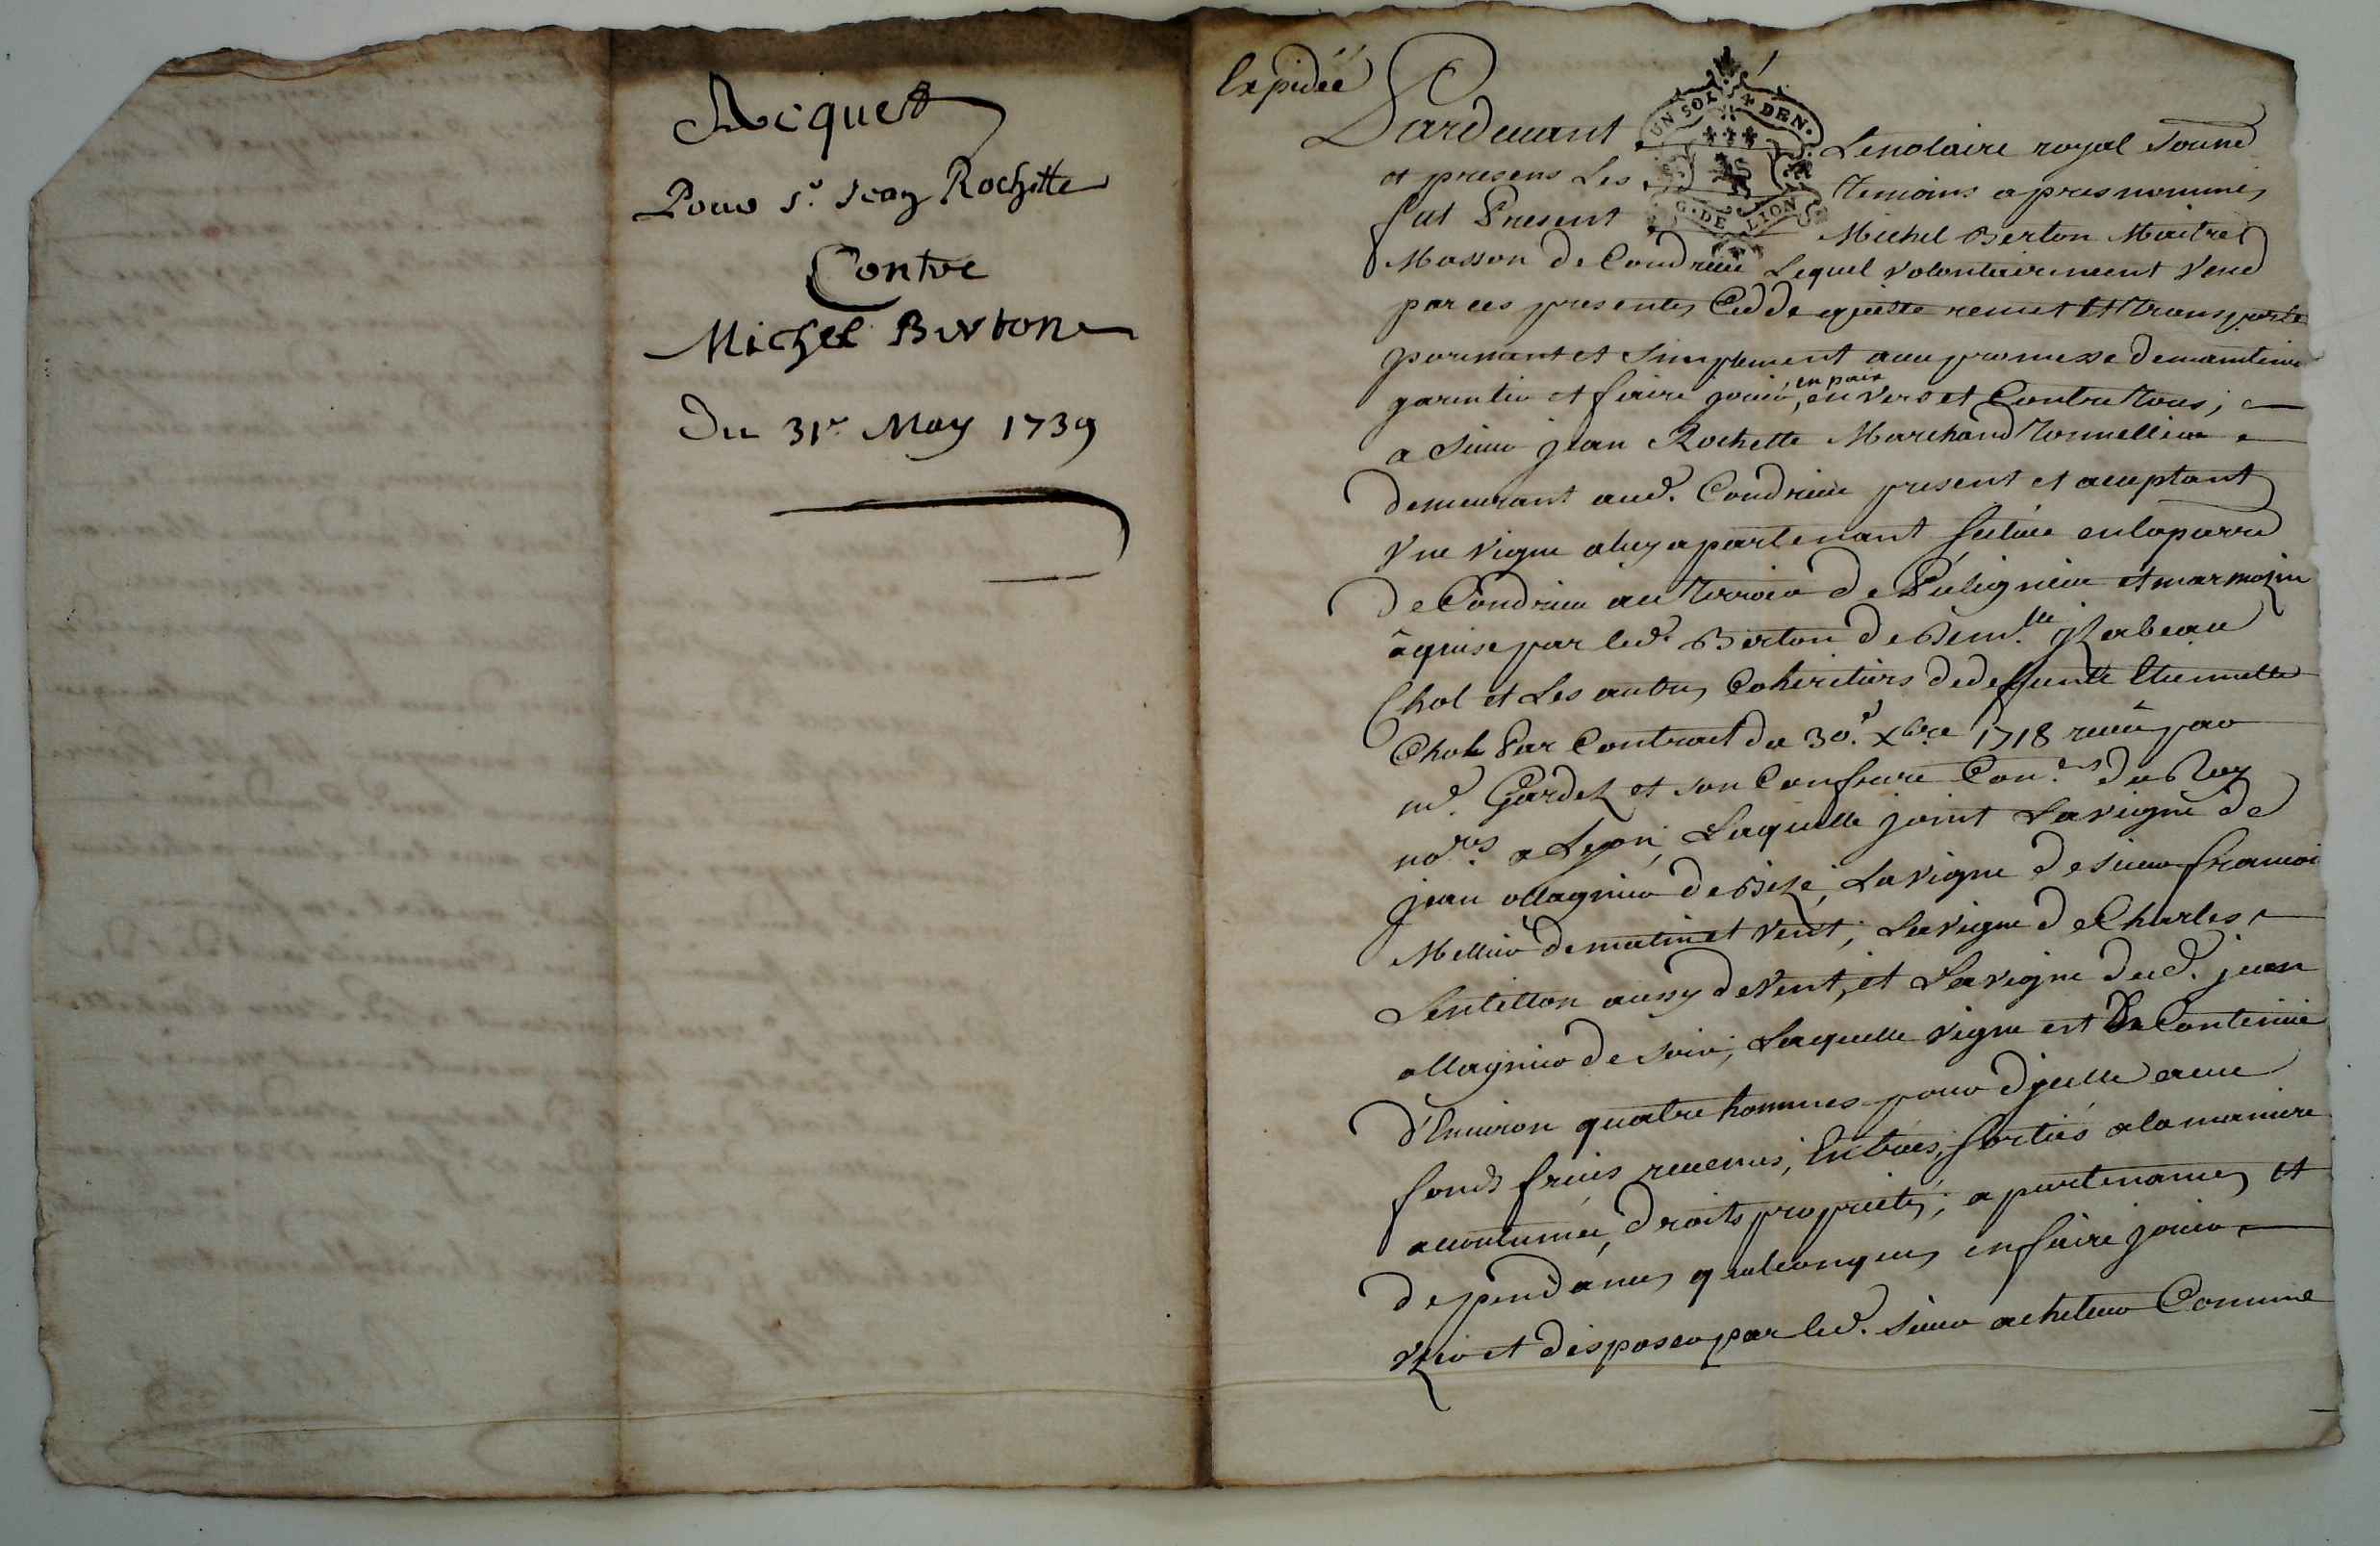 Acquet
Pour Sr. Jean Rochette
Contre
Michel Berton
Du 31e. May 1739
Expediée
UN SOL 4 DEN.
G. DE LION
Pardevant Lenotaire royal soune
et presens Les temoins apres nommés
fut Present Michel Berton Maitre
Masson de Condrieu Lequel volontairement vend
par ces presentes Cedde quitte remet Et transporte
purement et simplement avec promesse demaintenir
garentir et faire jouir, en paix, envers et Contre tous,
a sieur jean Rochette Marchand tonnellier
demeurant aud. Condrieu present et aceptant
Vne vigne aluy apartenant scituée enlaparre
de Condrieu au terroir de Pulignieu et marmozin
aquise par led. Berton de Dem.lle jzabeau
Chol et Les autres Coheritiers dedeffunte Etiennette
Chol Par Contract du 30.e xbre 1718 receu par
me. Gardez et son Confrere Con.ers du Roy
no.res a Lyon, Laquelle joint Lavigne de
jean ollagnier de Bize, Lavigne de sieur francois
Mellier dematin et vent, Lavigne de Charles
Lentillon aussy devent, et Lavigne dud. jean
ollagnier de soir, Laquelle vigne est De Contenüe
d'Environ quatre hommes pour djcelle avec
fonds fruits revenus, Entrées, sorties alamaniere
acoutumée, droits proprietés, apartenances et
dependances quelconques enfaire jouir
vzer et disposer par led. sieur acheteur Comme